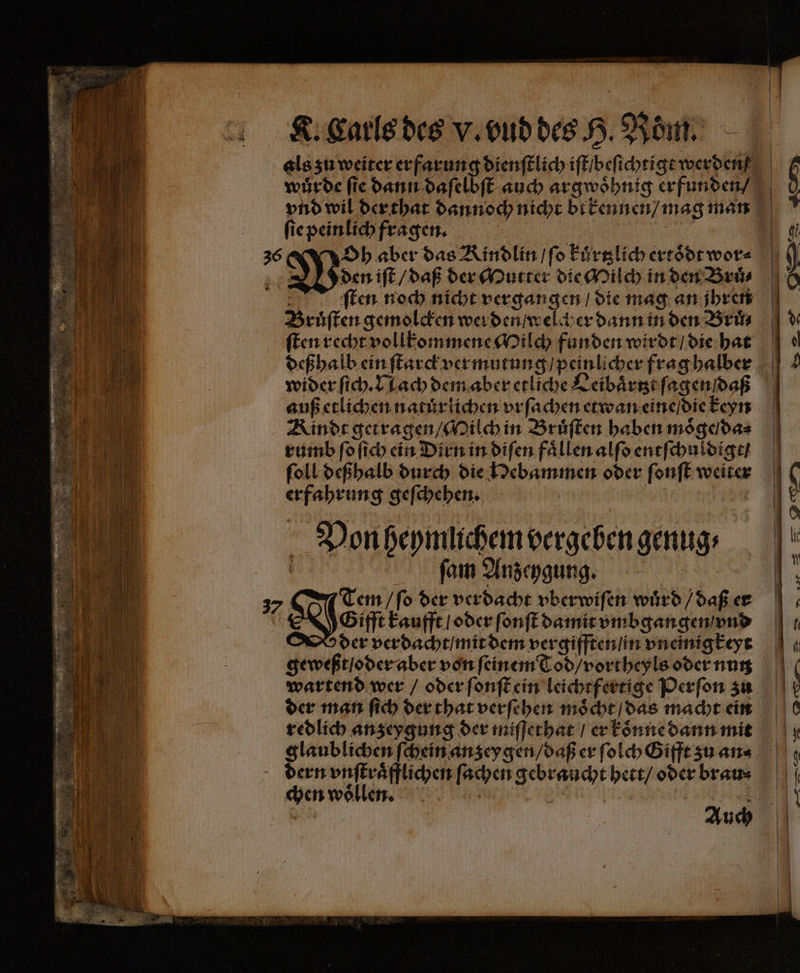 K. Carls des v. vnd des H. Röm.
als zu weiter erfarung dienſtlich iſt/beſichtigt werden/
würde ſie dann daſelbſt auch argwöhnig erfunden/
vnd wil der that dannoch nicht bekennen/mag man
ſie peinlich fragen.
36 WOh aber das Kindlin/ſo kürtzlich ertödt wor⸗
den iſt/daß der Mutter die Milch in den Brü⸗
ſten noch nicht vergangen/die mag an jhren
Brüſten gemolcken werden/welcher dann in den Brü⸗
ſten recht vollkommene Milch funden wirdt/die hat
deßhalb ein ſtarck vermutung/peinlicher frag halber
wider ſich. Nach dem aber etliche Leibärtzt ſagen/daß
auß etlichen natürlichen vrſachen etwan eine/die keyn
Kindt getragen/Milch in Brüſten haben möge/da⸗
rumb ſo ſich ein Dirn in diſen fällen alſo entſchuldigt/
ſoll deßhalb durch die Hebammen oder ſonſt weiter
erfahrung geſchehen.
Von heymlichem vergeben genug⸗
ſam Anzeygung.
37 ITem/ſo der verdacht vberwiſen würd/daß er
Gifft kaufft/oder ſonſt damit vmbgangen/vnd
der verdacht/mit dem vergifften/in vneinigkeyt
geweßt/oder aber von ſeinem Tod/vortheyls oder nutz
wartend wer/oder ſonſt ein leichtfertige Perſon zu
der man ſich der that verſehen möcht/das macht ein
redlich anzeygung der miſſethat/er könne dann mit
glaublichen ſchein anzeygen/daß er ſolch Gifft zu an⸗
dern vnſträfflichen ſachen gebraucht hett/oder brau⸗
chen wöllen.
Auch